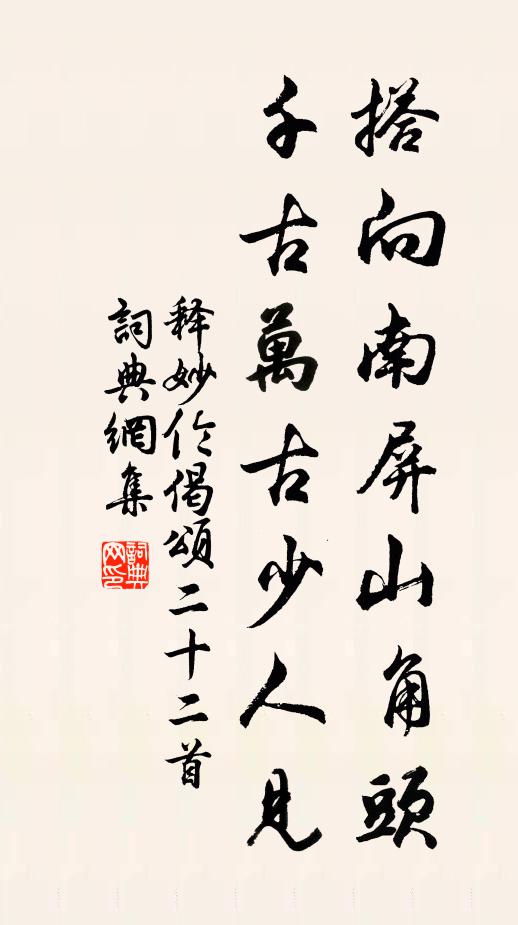 搭向南屏山角頭
千古萬古少人見
释妙伦偈頌二十二首
詞典網集
詞典网印